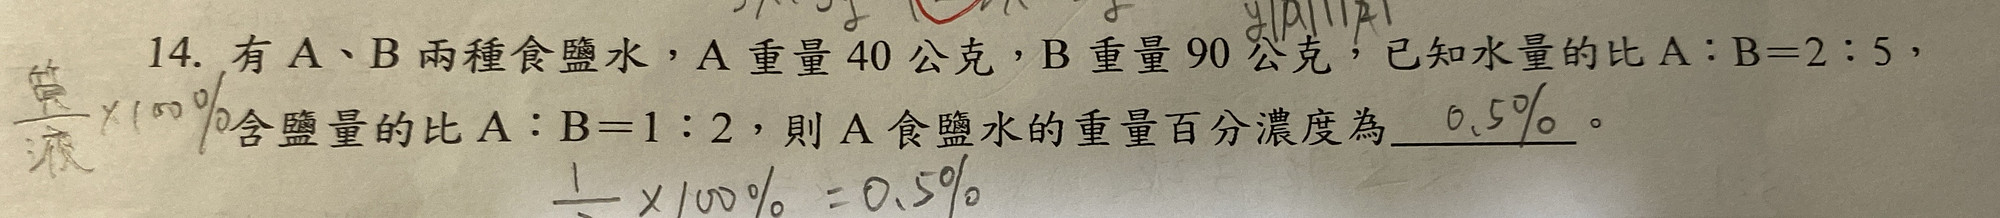 14. 有 A、B 兩種食鹽水，A 重量 40 公克，B 重量 90 公克，已知水量的比 A：B=2：5，
質
液
×100%
含鹽量的比 A：B=1：2，則 A 食鹽水的重量百分濃度為 0.5% 。
1
×100% =0.5%